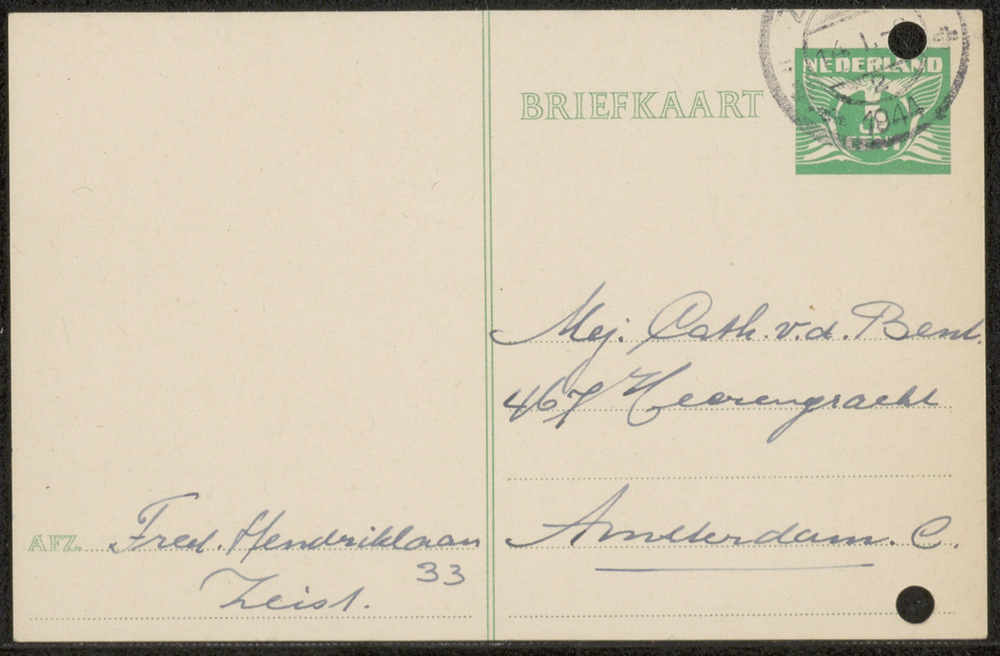 BRIEFKAART
NEDERLAND
CENT
1944
Mej. Cath. v.d. Bent.
467 Heerengracht
Amsterdam. C.
AFZ. Fred. Hendriklaan
33
Zeist.